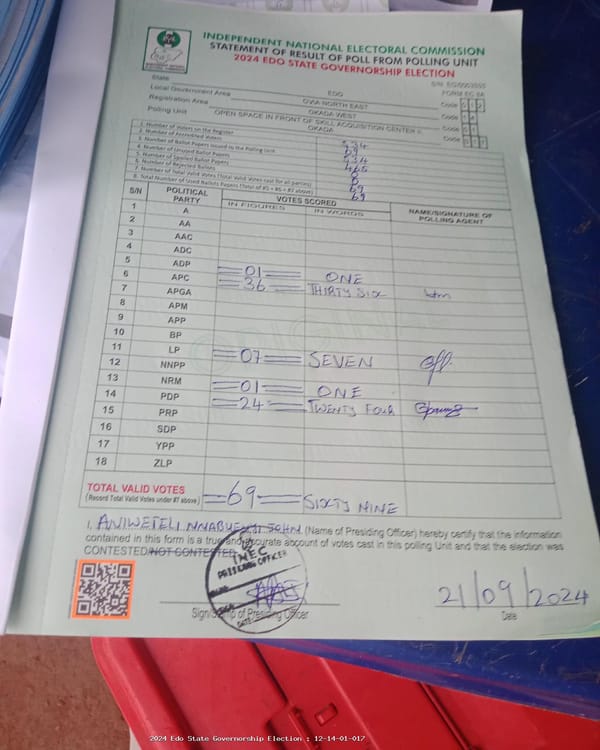 INDEPENDENT NATIONAL ELECTORAL COMMISSION
STATEMENT OF RESULT OF POLL FROM POLLING UNIT
2024 EDO STATE GOVERNORSHIP ELECTION
FORM EC 8A
State EDO Code 012
Local Government Area OVIA NORTH EAST Code 14
Registration Area OKADA WEST Code 01
Polling Unit OPEN SPACE IN FRONT OF SKILL ACQUISITION CENTER OKADA Code 017
1. Number of Voters on the Register 534
2. Number of Accredited Voters 69
3. Number of Ballot Papers Issued to the Polling Unit 534
4. Number of Unused Ballot Papers 465
5. Number of Spoiled Ballot Papers
6. Number of Rejected Ballots 0
7. Number of Total Valid Votes (Total Valid Votes cast for all parties) 69
8. Total Number of Used Ballots Papers (Total of #5 + #6 + #7 above) 69
S/N POLITICAL PARTY VOTES SCORED NAME/SIGNATURE OF POLLING AGENT
IN FIGURES IN WORDS
1 A
2 AA
3 AAC
4 ADC
5 ADP 01 ONE
6 APC 36 THIRTY SIX
7 APGA
8 APM
9 APP
10 BP
11 LP 07 SEVEN
12 NNPP
13 NRM 01 ONE
14 PDP 24 TWENTY FOUR
15 PRP
16 SDP
17 YPP
18 ZLP
TOTAL VALID VOTES 69 SIXTY NINE
(Record Total Valid Votes under #7 above)
I, ANIWETELI JOHN (Name of Presiding Officer) hereby certify that the information
contained in this form is a true and accurate account of votes cast in this polling Unit and that the election was
CONTESTED/NOT CONTESTED
INEC
PRESIDING OFFICER
DATE
21/09/2024
Sign/Stamp of Presiding Officer Date
2024 Edo State Governorship Election : 12-14-01-017